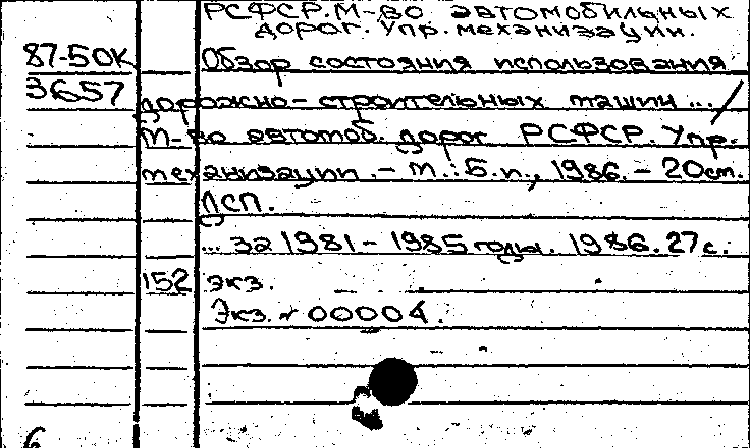 РСФСР. М-во автомобильных
дорог. Упр. механизации.
87-50К Обзор состояния использования
3657 дорожно-строительных машин ... /
М-во автомоб. дорог РСФСР. Упр.
механизации. - М.: Б.и., 1986. - 20см.
ДСП.
... за 1981-1985 годы. 1986. 27с.
152 экз.
Экз. № 00004.
6